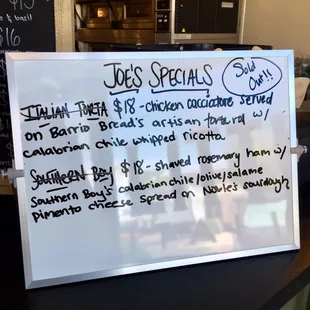 & basil
$16
JOE'S SPECIALS
Sold
Out!!
ITALIAN TORTA $18 - chicken cacciatore served
on Barrio Bread's artisan w/
calabrian chile whipped ricotta
SOUTHERN BOY $18 - shaved rosemary ham w/
Southern Boy's calabrian chile/olive/salame
pimento cheese spread on Noble's sourdough